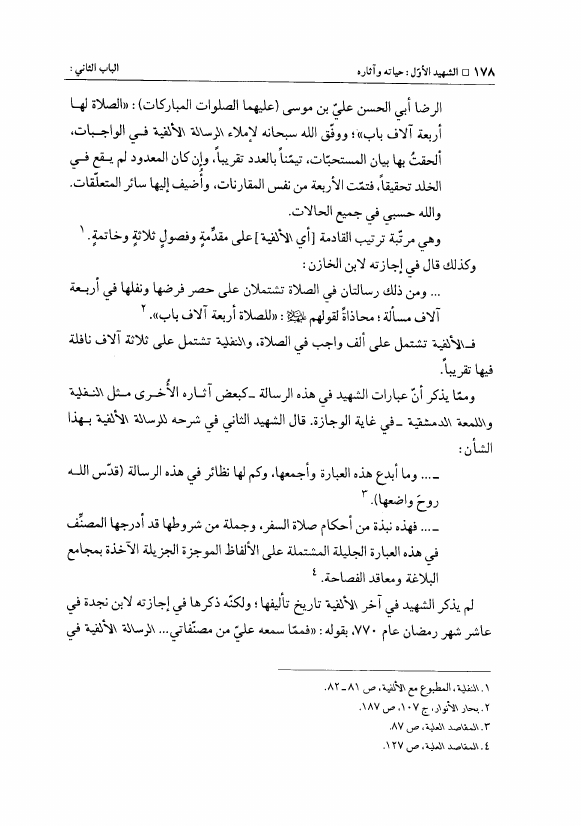 ١٧٨ □ الشهيد الأوّل: حياته وآثاره
الباب الثاني:
الرضا أبي الحسن عليّ بن موسى (عليهما الصلوات المباركات): «الصلاة لها
أربعة آلاف باب»؛ ووفّق الله سبحانه لإملاء الرسالة الألفية في الواجبات،
ألحقتُ بها بيان المستحبّات، تيمّناً بالعدد تقريباً، وإن كان المعدود لم يقع في
الخلد تحقيقاً، فتمّت الأربعة من نفس المقارنات، وأُضيف إليها سائر المتعلّقات.
والله حسبي في جميع الحالات.
وهي مرتّبة ترتيب القادمة [أي الألفية] على مقدِّمةٍ وفصولٍ ثلاثةٍ وخاتمةٍ.١
وكذلك قال في إجازته لابن الخازن:
... ومن ذلك رسالتان في الصلاة تشتملان على حصر فرضها ونفلها في أربعة
آلاف مسألة؛ محاذاةً لقولهم ﷺ: «للصلاة أربعة آلاف باب».٢
فـالألفية تشتمل على ألف واجب في الصلاة، والنفلية تشتمل على ثلاثة آلاف نافلة
فيها تقريباً.
وممّا يذكر أنّ عبارات الشهيد في هذه الرسالة ـكبعض آثاره الأُخرى مثل النفلية
واللمعة الدمشقية ـ في غاية الوجازة. قال الشهيد الثاني في شرحه للرسالة الألفية بهذا
الشأن:
ـ... وما أبدع هذه العبارة وأجمعها، وكم لها نظائر في هذه الرسالة (قدّس الله
روحَ واضعها).٣
ـ... فهذه نبذة من أحكام صلاة السفر، وجملة من شروطها قد أدرجها المصنِّف
في هذه العبارة الجليلة المشتملة على الألفاظ الموجزة الجزيلة الآخذة بمجامع
البلاغة ومعاقد الفصاحة.٤
لم يذكر الشهيد في آخر الألفية تاريخ تأليفها؛ ولكنّه ذكرها في إجازته لابن نجدة في
عاشر شهر رمضان عام ٧٧٠، بقوله: «فممّا سمعه عليّ من مصنّفاتي... الرسالة الألفية في
١. النفلية، المطبوع مع الألفية، ص ٨١ـ٨٢.
٢. بحار الأنوار، ج ١٠٧، ص ١٨٧.
٣. المقاصد العلية، ص ٨٧.
٤. المقاصد العلية، ص ١٢٧.